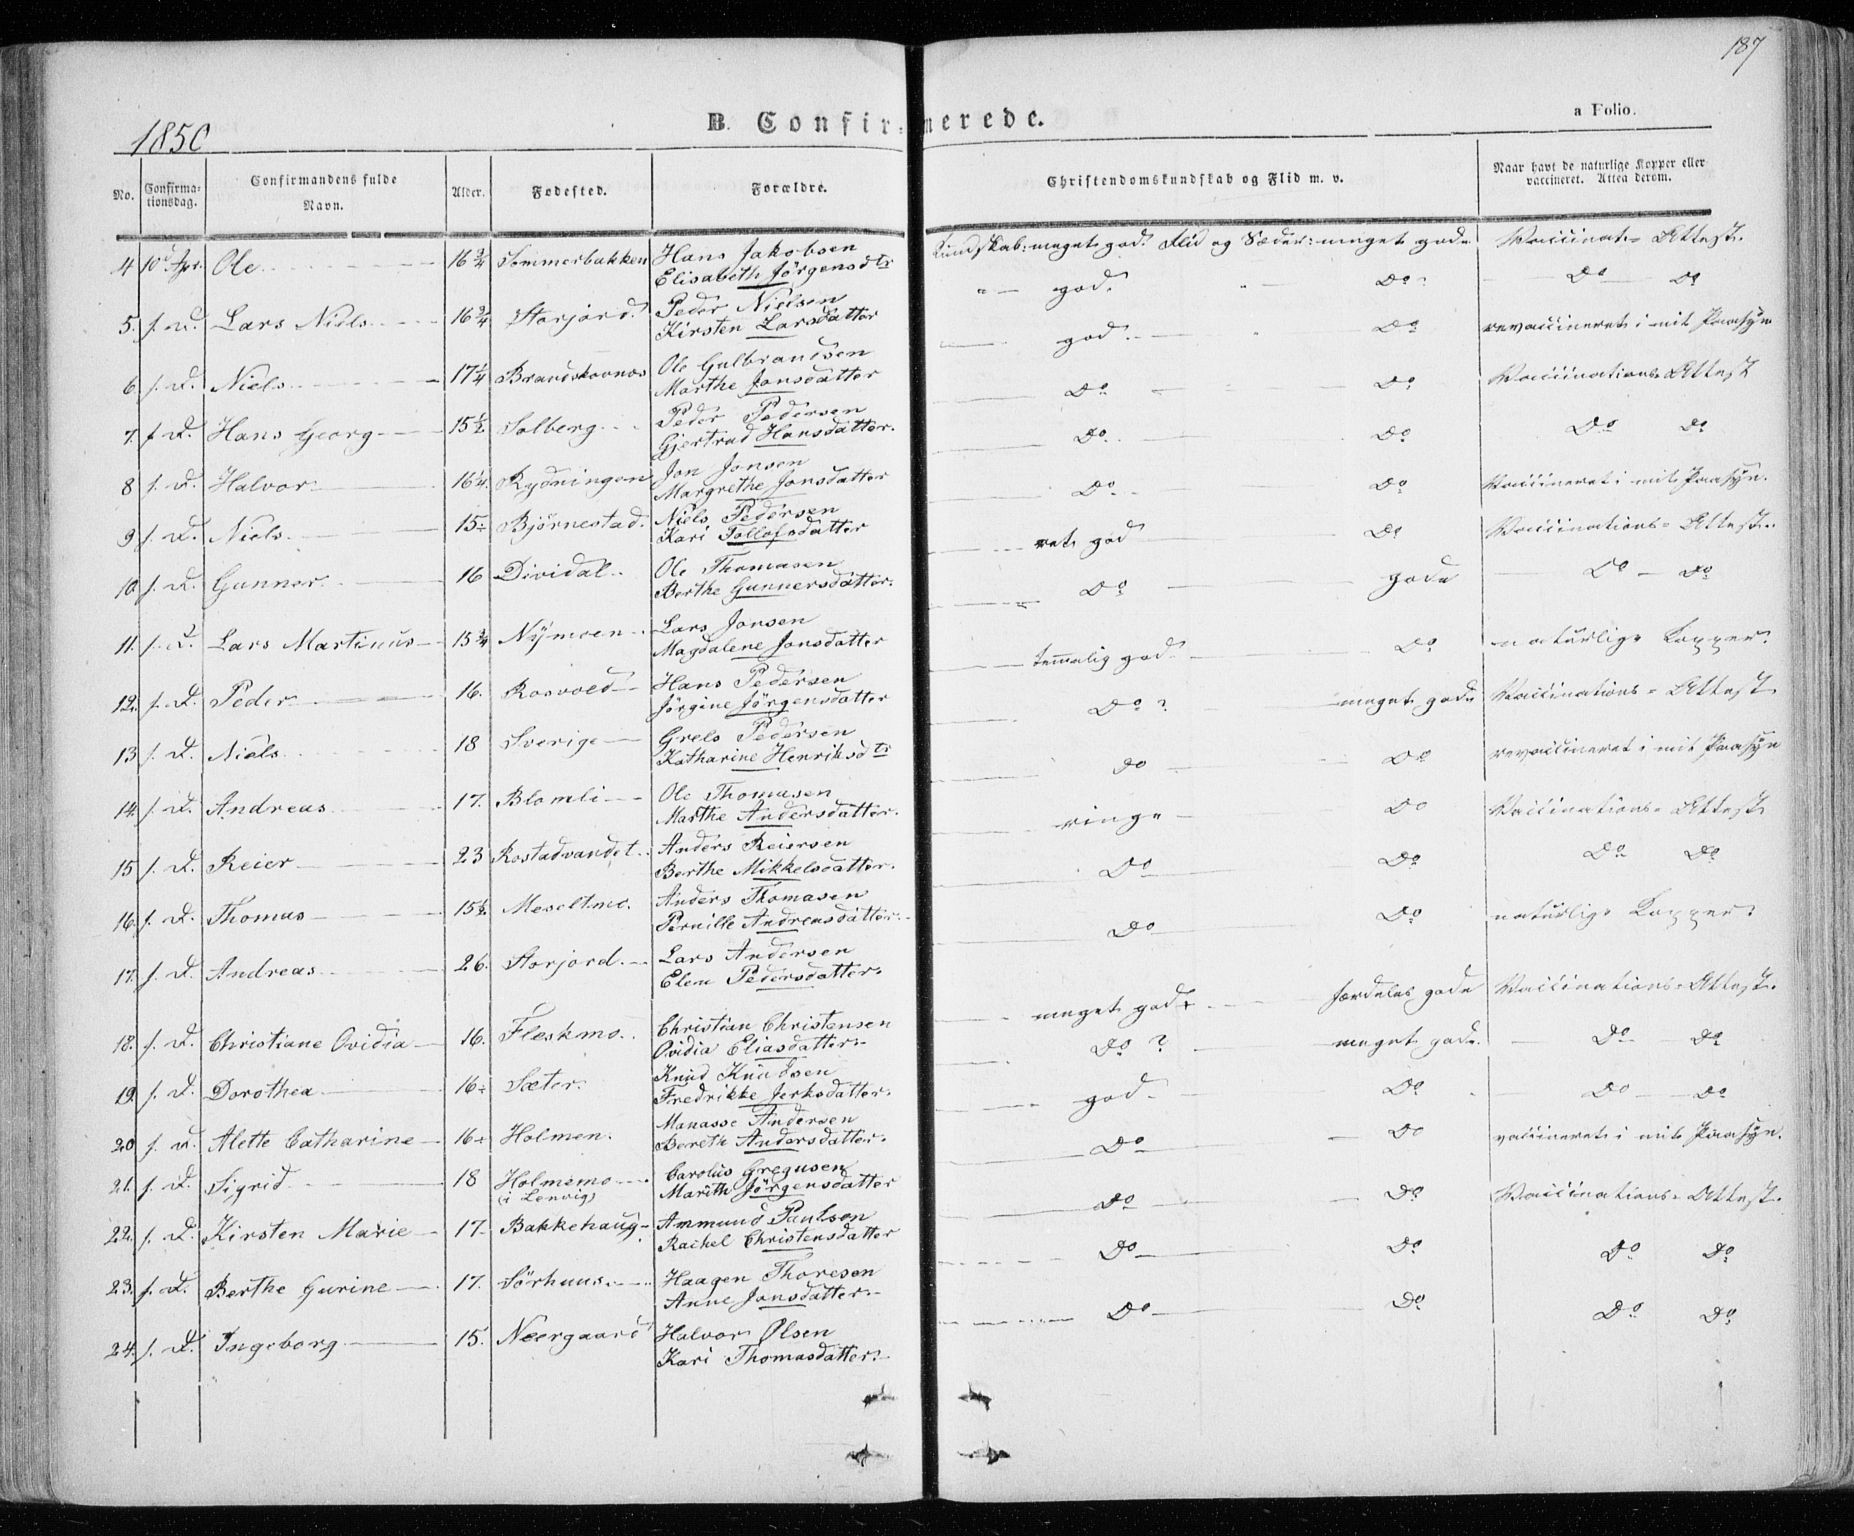 187
1850
B. Confirmerede.
a Folio.
No. Confirmationsdag. Confirmandens fulde Navn. Alder. Fødested. Forældre. Christendomskundskab og Flid m. v. Naar havt de naturlige Kopper eller vaccineret. Attest derom.
4 10de Apr. Ole 16 3/4 Sommerbakken Hans Jakobsen Kundskab: meget god. Flid og Sæder: meget gode Vaccinat= Attest.
Elisabeth Jörgensdtr
5. s. D. Lars Niels 16 3/4 Storjord. Peder Nielsen " — god. " — Do Do — Do
Kirsten Larsdatter
6 s. D. Niels 17 1/4 Brandskovnes Ole Gulbrandsen god. Do revaccineret i mit Paasyn
Marthe Jonsdatter
7. s. D. Hans Georg 15 1/2 Solberg Peder Pedersen Do Do Vaccinations=Attest
Gjertrud Hansdatter.
8 s. D. Halvor 16 1/4. Rydningen Jon Jonsen Do Do Do Do
Margrethe Jonsdatter
9 s. D. Niels 15 ÷ Björnestad. Niels Pedersen Do Do Vaccineret i mit Paasyn.
Kari Tollofsdatter
10 s. D. Gunner 16 Dividal Ole Thomasen ret god Do Vaccinations=Attest.
Berthe Gunnersdatter.
11. s. D. Lars Martinus 15 3/4 Nÿmoen Lars Jonsen Do gode Do — Do
Magdalene Jonsdatter
12. s. D. Peder 16. Rosvold Hans Pedersen temmelig god Do naturlige Kopper.
Jörgine Jörgensdatter
13 s. D. Niels 18 Sverige Grels Pedersen Do ? meget gode Vaccinations=Attest
Katharine Henriksdtr
14. s. D. Andreas 17. Blomli Ole Thomasen Do Do revaccineret i mit Paasyn
Marthe Andersdatter.
15 s. D. Reier 23 Rostadvandet Anders Reiersen ringe Do Vaccinations=Attest
Berthe Mikkelsdatter.
16. s. D. Thomas 15 1/2. Meseltmo. Anders Thomasen Do Do Do Do
Pernille Andreasdatter.
17. s. D. Andreas 26. Storjord. Lars Andersen Do Do naturlige Kopper.
Elen Pedersdatter.
18. s. D. Christiane Ovidia 16. Fleskmo. Christian Christensen meget god+ særdeles gode Vaccinations=Attest.
Ovidia Eliasdatter.
19. s. D. Dorothea 16 ÷ Sæter. Knud Knudsen Do ? meget gode. Do Do
Fredrikke Jerksdatter.
20 s. D. Alette Catharine 16 ÷ Holmen. Manasse Andersen god Do Do Do
Bereth Andersdatter.
21. s. D. Sigrid 18 Holmemo Carolus Gregusen Do Do vaccineret i mit Paasyn.
(i Lenvig) Marith Jörgensdatter
22. s. D. Kirsten Marie 17. Bakkehaug Ammund Paulsen Do Do Vaccinations=Attest.
Rachel Christensdatter
23. s. D. Berthe Gurine 17. Sörhuus. Haagen Thoresen Do Do Do Do
Anne Jonsdatter.
24. s. D. Ingeborg 15. Neergaard Halvor Olsen Do Do Do Do
Kari Thomasdatter.